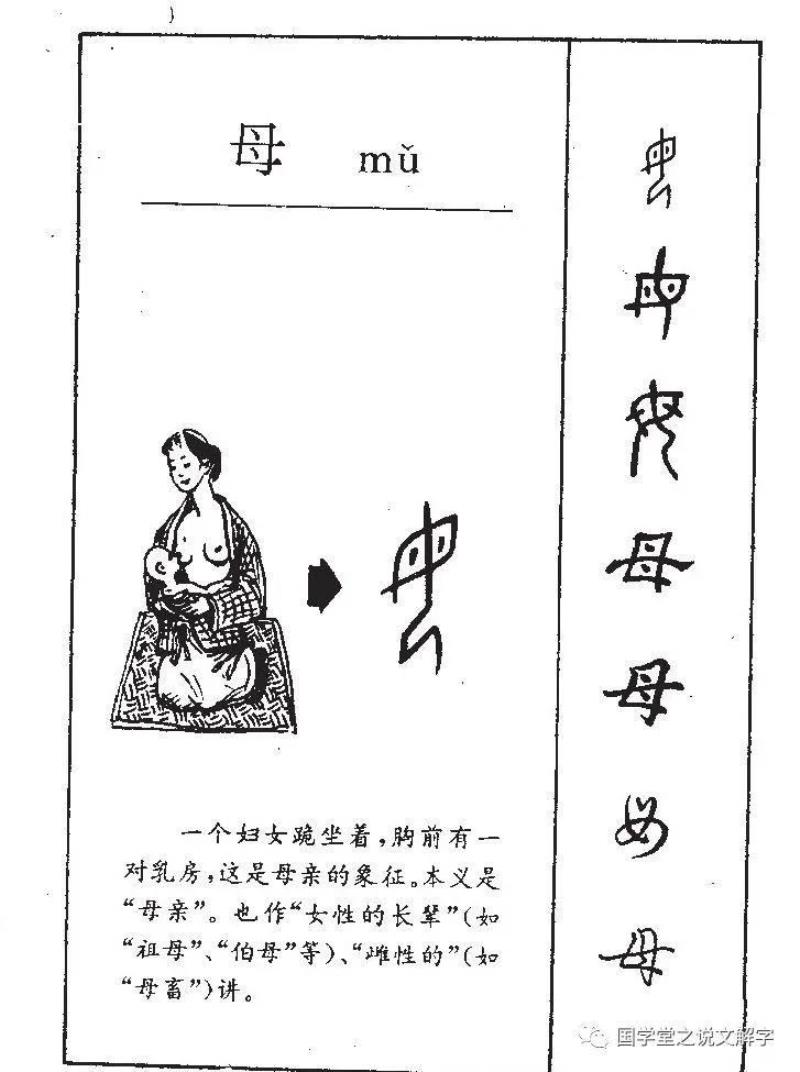 母 mǔ
一个妇女跪坐着，胸前有一
对乳房，这是母亲的象征。本义是
“母亲”。也作“女性的长辈”(如
“祖母”、“伯母”等)、“雌性的”(如
“母畜”)讲。
母
母
母
国学堂之说文解字